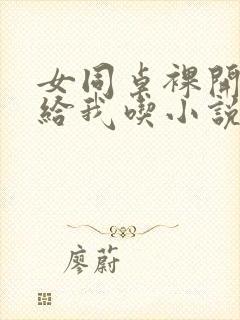 女同桌裸開
給我喫小說
廖蔚